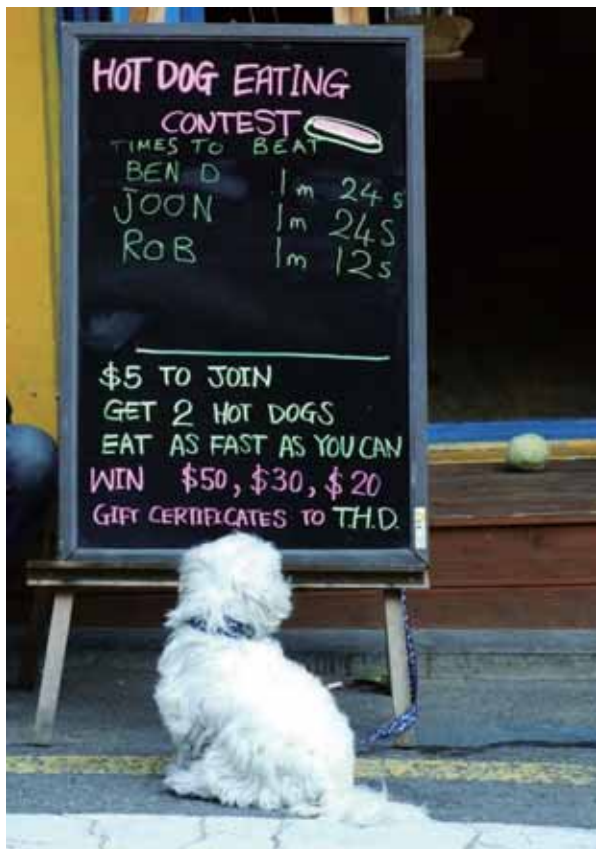 HOT DOG EATING
CONTEST
TIMES TO BEAT
BEN D 1m 24s
JOON 1m 24s
ROB 1m 12s
$5 TO JOIN
GET 2 HOT DOGS
EAT AS FAST AS YOU CAN
WIN $50, $30, $20
GIFT CERTIFICATES TO T.H.D.